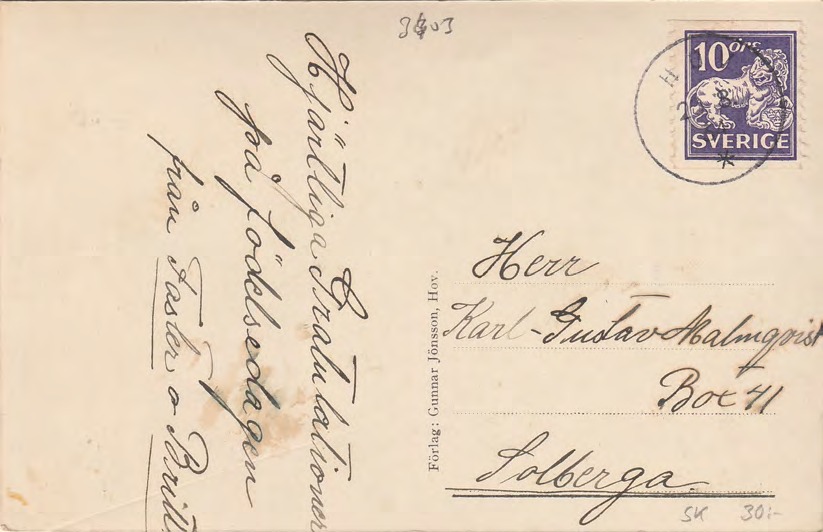 3303
Hjärtliga Gratulationer
på födelsedagen
från Faster o Britt
Förlag: Gunnar Jönsson, Hov.
10 öre
SVERIGE
Herr
Karl-Gustav Malmqvist
Box 41
Solberga
SK 30:-